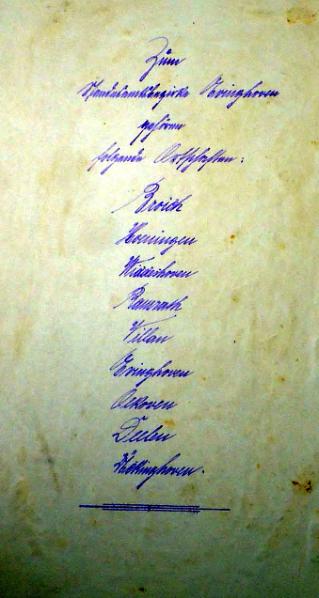 Zum
Standesamtsbezirke Evinghoven
gehören
folgende Ortschaften:
Broich
Hoeningen
Widdeshoven
Ramrath
Villau
Evinghoven
Oekoven
Deelen
Höttinghoven.